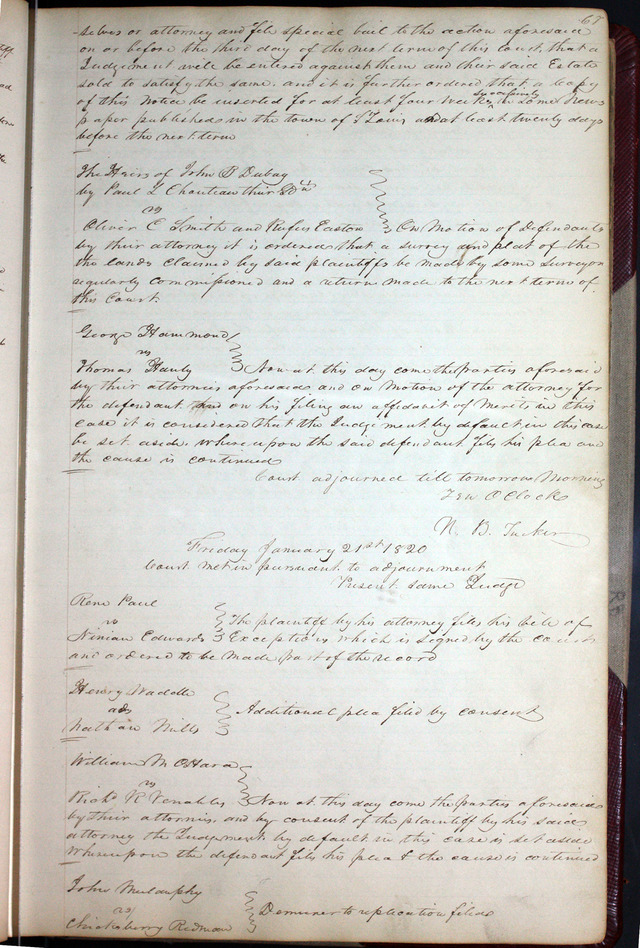 67
-selves or attorney and file special bail to the action aforesaid
on or before the third day of the next term of this Court, that a
Judgement will be entered against them and their said Estate
sold to satisfy the same. and it is further ordered that a copy
of this Notice be inserted for at least four weeks successively in some News
paper published in the town of St Louis and at least twenty days
before the next term
The Heirs of John B Dubay
by Paul L Chouteau their
vs
Oliver C Smith and Rufus Easton On Motion of defendants
by their attorney it is ordered that a survey and plat of the
the lands claimed by said plaintiffs be made by some surveyor
regularly commissioned and a return made to the next term of
this Court
George Hammond
vs
Thomas Hanly Now at this day come the parties aforesaid
by their attornies aforesaid and on motion of the attorney for
the defendant and on his filing an affidavit of Merits in this
case it is considered that the Judgement by default in this case
be set aside whereupon the said defendant files his plea and
the cause is continued
Court adjourned till tomorrow Morning
Ten OClock
N. B. Tucker
Friday January 21st 1820
Court met in pursuant to adjournment
Present same Judge
Rene Paul
vs The plaintiff by his attorney files his bill of
Ninian Edwards Exceptions which is signed by the court
and ordered to be made part of the record
Henry Waddle
ads Additional plea filed by consent
Nathan Mills
William M OHara
vs
Richd K Venables Now at this day come the parties aforesaid
by their attornies and by consent of the plaintiff by his said
attorney the Judgement by default in this case is set aside
Whereupon the defendant files his plea & the cause is continued
John Mulanphy
vs Demurrer to replication filed
Chicksberry Redman